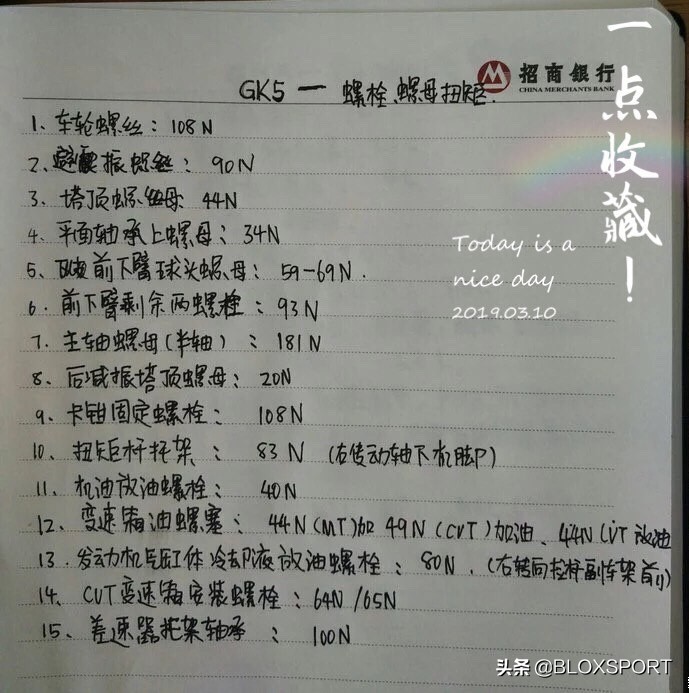 招商銀行
CHINA MERCHANTS BANK
GK5 一 螺栓、螺母扭矩.
1、车轮螺丝：108N
2、避振螺丝：90N
3、塔顶螺丝母 44N
4、平面轴承上螺母：34N
5、前下臂球头螺母：59-69N.
6、前下臂剩余两螺栓：93N
7、主轴螺母(半轴)：181N
8、后减振塔顶螺母：20N
9、卡钳固定螺栓：108N
10、扭矩杆托架：83N (右传动轴下机脚P)
11、机油放油螺栓：40N
12、变速箱油螺塞：44N(MT)加 49N(CVT)加油、44N(VT放油
13、发动机气缸体冷却液放油螺栓：80N.(右转向拉杆副车架前)
14、CVT变速箱安装螺栓：64N/65N
15、差速器托架轴承：100N
一点收藏！
Today is a
nice day
2019.03.10
头条 @BLOXSPORT